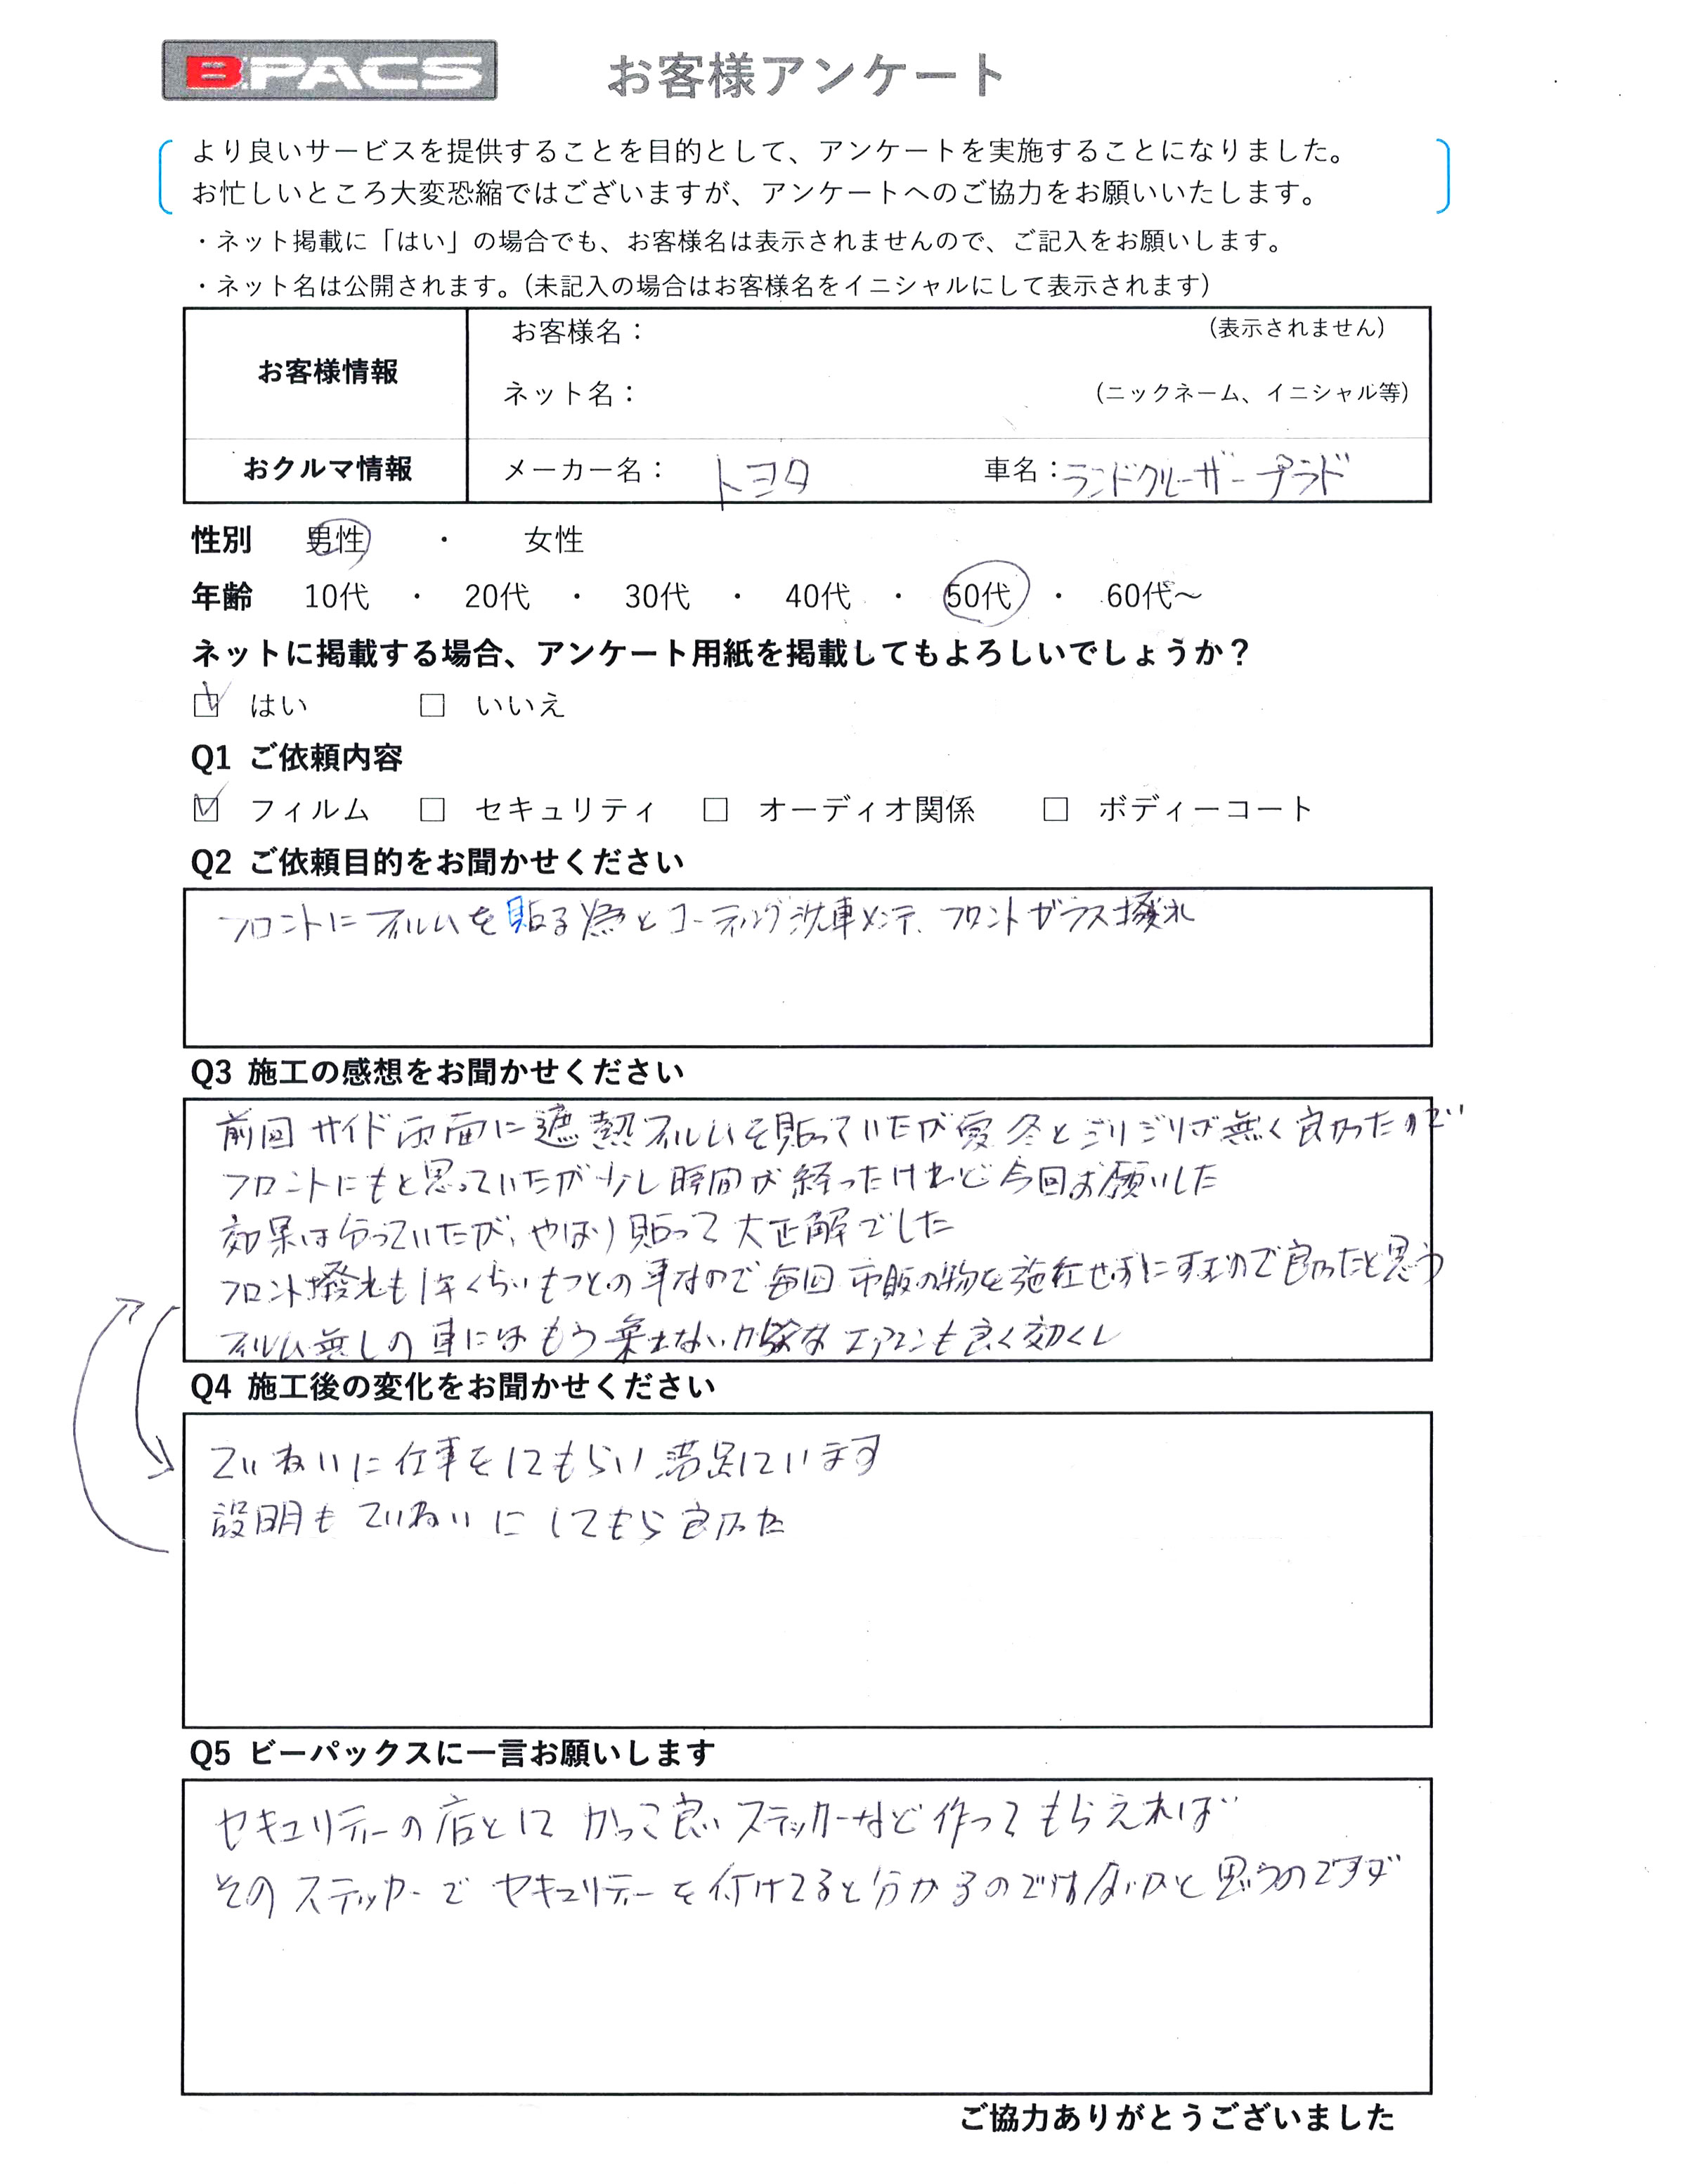 B.PACS お客様アンケート
より良いサービスを提供することを目的として、アンケートを実施することになりました。
お忙しいところ大変恐縮ではございますが、アンケートへのご協力をお願いいたします。
・ネット掲載に「はい」の場合でも、お客様名は表示されませんので、ご記入をお願いします。
・ネット名は公開されます。(未記入の場合はお客様名をイニシャルにして表示されます)
お客様情報 お客様名： (表示されません)
ネット名： (ニックネーム、イニシャル等)
おクルマ情報 メーカー名： トヨタ 車名：ランドクルーザープラド
性別 男性 ・ 女性
年齢 10代 ・ 20代 ・ 30代 ・ 40代 ・ 50代 ・ 60代～
ネットに掲載する場合、アンケート用紙を掲載してもよろしいでしょうか？
☑ はい □ いいえ
Q1 ご依頼内容
☑ フィルム □ セキュリティ □ オーディオ関係 □ ボディーコート
Q2 ご依頼目的をお聞かせください
フロントにフィルムを貼る為とコーティング洗車メンテ、フロントガラス撥水
Q3 施工の感想をお聞かせください
前回サイド両面に遮熱フィルムを貼っていたが夏冬とジリジリが無く良かったので
フロントにもと思っていたが少し時間が経ったけれど今回お願いした
効果は分っていたが、やはり貼って大正解でした
フロント撥水も1年くらいもつとの事なので毎回市販の物を施行せずにすむので良かったと思う
フィルム無しの車にはもう乗れないかな エアコンも良く効くし
Q4 施工後の変化をお聞かせください
ていねいに仕事をしてもらい満足しています
説明もていねいにしてもら良かった
Q5 ビーパックスに一言お願いします
セキュリティーの店としてかっこ良いステッカーなど作ってもらえれば
そのステッカーでセキュリティーを付けてると分かるのではないかと思うのですが
ご協力ありがとうございました